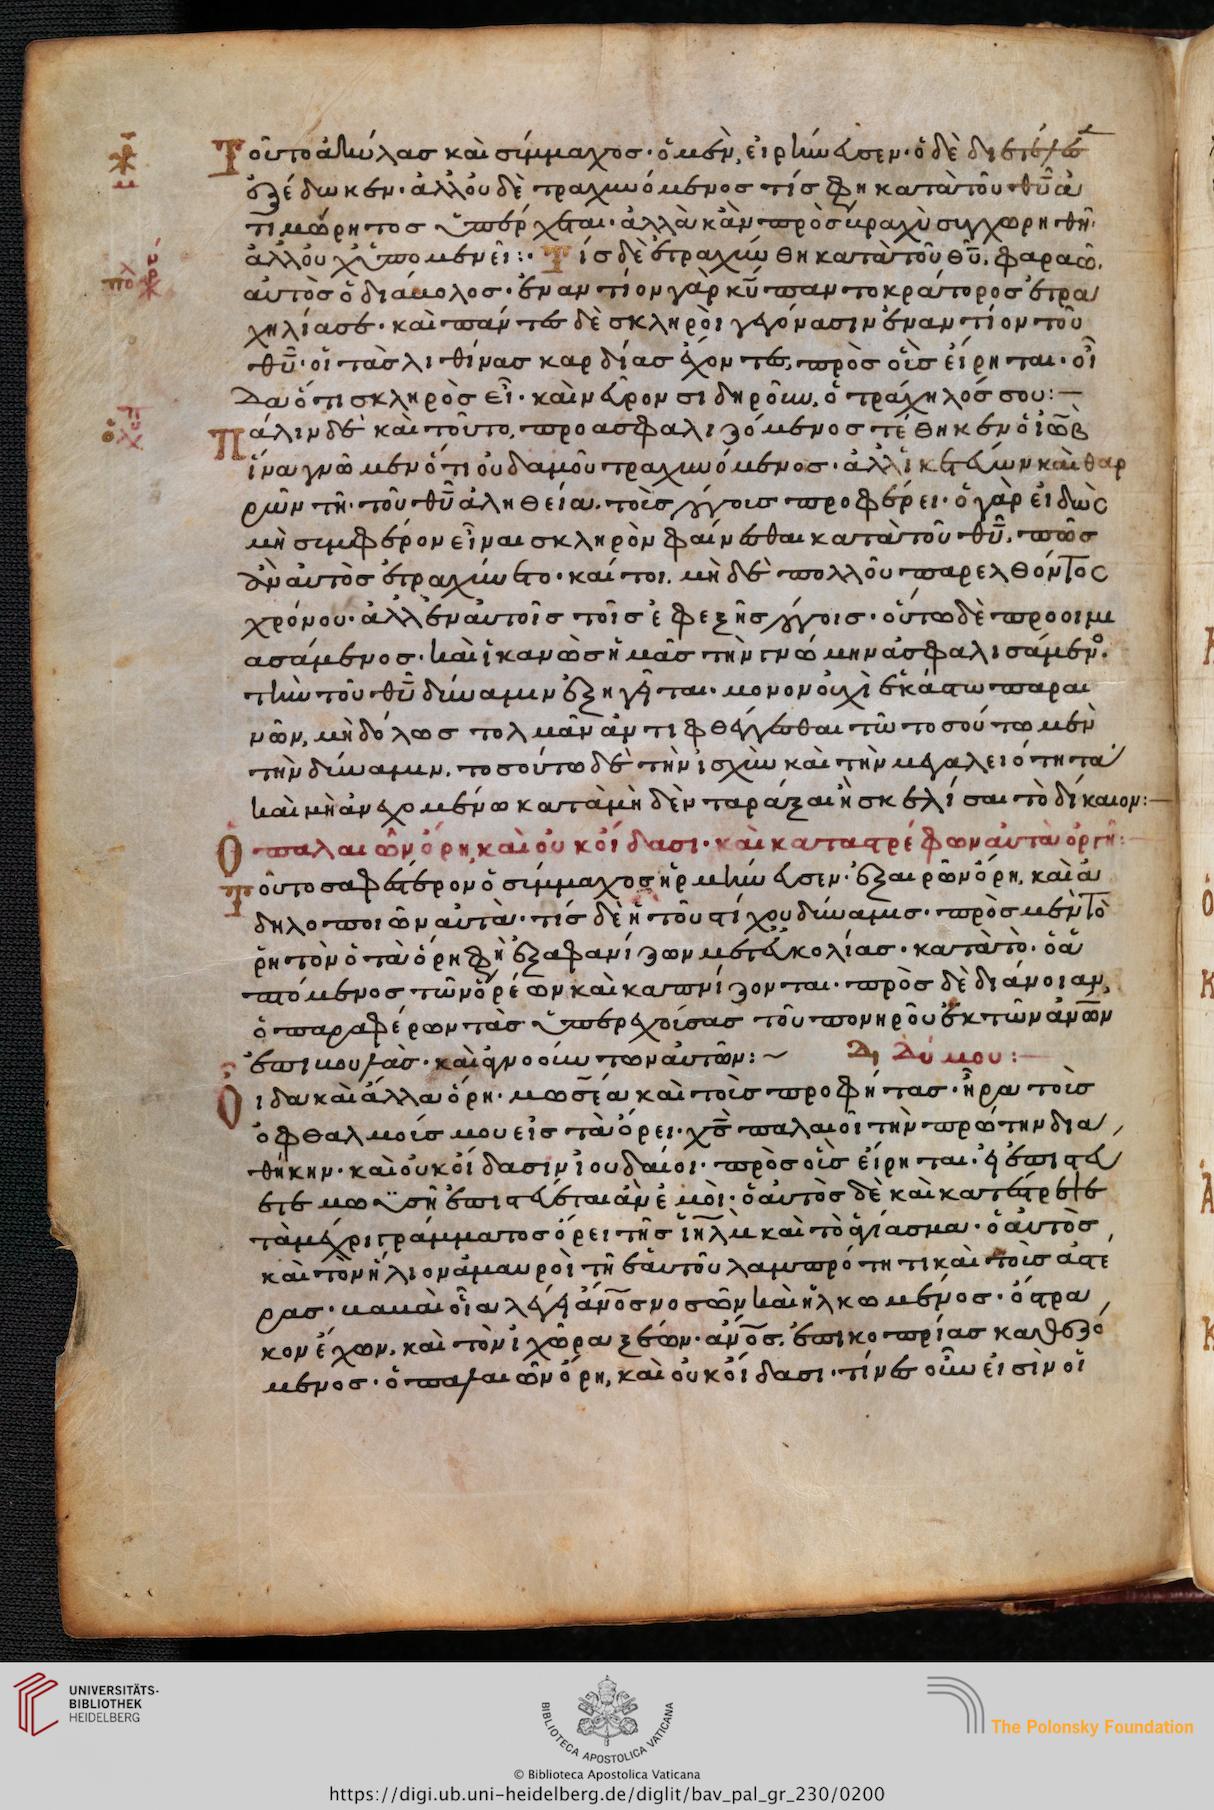 Τοῦτο ἀκύλας καὶ σύμμαχος· ὁ μὲν, εἰρήνευσεν· ὁ δὲ διετέλεσεν
ἐξέδωκεν· ἀλλ' οὐδὲ τραχυνόμενος τίς φη κατὰ τοῦ θυ ἀ
τιμώρητος ὑπέρχεται· ἀλλὰ κἂν πρὸς βραχὺ συγχωρηθῇ·
ἀλλ' οὐχ ὑπομενεῖ:· Τίς δὲ ἐτραχύνθη κατὰ τοῦ θυ. φαραώ.
αὐτὸς ὁ διάβολος· ἔναντίον γὰρ κυ παντοκράτορος ἐτρα
χηλίασε· καὶ πάντες δὲ σκληροὶ γεγόνασιν ἐναντίον τοῦ
θυ· οἱ τὰς λιθίνας καρδίας ἔχοντες, πρὸς οἷς εἴρηται· οἶ
δα ὅτι σκληρὸς εἶ· καὶ νεῦρον σιδηροῦν, ὁ τράχηλός σου:
Πάλιν δὲ καὶ τοῦτο, προασφαλιζόμενος τέθηκεν ὁ ἰὼβ
ἵνα γνῶμεν ὅτι οὐδαμοῦ τραχυνόμενος· ἀλλ' ἱκετεύων καὶ θαρ
ρῶν τῇ τοῦ θυ ἀληθείᾳ. τοὺς λόγους προφέρει· ὁ γὰρ εἰδὼς
μὴ συμφέρον εἶναι σκληρὸν φαίνεσθαι κατὰ τοῦ θυ. πῶς
ἂν αὐτὸς ἐτραχύνετο· καίτοι, μηδὲ πολλοῦ παρελθόντος
χρόνου· ἀλλ' ἐν αὐτοῖς τοῖς ἐφεξῆς λόγοις· οὕτω δὲ προοιμι
ασάμενος· καὶ ἱκανῶς ἡμᾶς τὴν γνώμην ἀσφαλισάμενος·
τὴν τοῦ θυ δύναμιν ἐξηγεῖται· μονονουχὶ ἑκάστω παραι
νῶν, μηδόλως τολμᾶν ἀντιφθέγγεσθαι τῶ τοσούτω μὲν
τὴν δύναμιν. τοσούτω δὲ τὴν ἰσχὺν καὶ τὴν μεγαλειότητα
καὶ μὴ ἀνεχομένω κατὰ μηδὲν ταράξαι ἢ σκελίσαι τὸ δίκαιον:
Ὁ παλαιῶν ὄρη, καὶ οὐκ οἴδασι· καὶ καταστρέφων αὐτὰ ὀργῇ:
Τοῦτο σαφέστερον ὁ σύμμαχος ἡρμήνευσεν· ἐξαιρῶν ὄρη, καὶ ἄ
δηλο ποιῶν αὐτὰ· τίς δὲ ἡ τοῦ στίχου δύναμις· πρὸς μὲν τὸ
ῥητὸν ὁ τὰ ὄρη φη ἐξαφανίζων μετ' εὐκολίας· κατὰ τὸ· ὁ ἁ
πτόμενος τῶν ὀρέων καὶ καπνίζονται· πρὸς δὲ διάνοιαν,
ὁ παραφέρων τὰς ὑπερεχούσας τοῦ πονηροῦ ἐκ τῶν ἀνων
ἐπιβουλὰς· καὶ ἀγνοούντων αὐτῶν: Διδύμου:
Οἶδα καὶ ἄλλα ὄρη· μωσέα καὶ τοὺς προφήτας· ἦρα τοὺς
ὀφθαλμούς μου εἰς τὰ ὄρει· χς παλαιοῖ τὴν πρώτην δια
θήκην· καὶ οὐκ οἴδασιν ἰουδαῖοι· πρὸς οὓς εἴρηται· εἰ ἐπιστεύ
ετε μωϋσῆ ἐπιστεύετε ἂν ἐμοὶ· ὁ αὐτὸς δὲ καὶ καταστρέφει
τὰ μέχρι γράμματος ὄρει τῆς ιηλμ καὶ τὸ ἁγίασμα· ὁ αὐτὸς
καὶ τὸν ἥλιον ἀμαυροῖ τῆ ἑαυτοῦ λαμπρότητι καὶ τοὺς ἀστέ
ρας· βαβαὶ οἷα λέγει ἀνος νοσῶν καὶ ἡλκωμένος· ὄστρα
κον ἔχων, καὶ τὸν ἰχῶρα ξέων· ανος. ἐπὶ κοπρίας καθεζό
μενος· ὁ παλαιῶν ὄρη, καὶ οὐκ οἴδασι· τίνες οὖν εἰσὶν οἱ
UNIVERSITÄTS-
BIBLIOTHEK
HEIDELBERG
BIBLIOTECA APOSTOLICA VATICANA
The Polonsky Foundation
© Biblioteca Apostolica Vaticana
https://digi.ub.uni-heidelberg.de/diglit/bav_pal_gr_230/0200